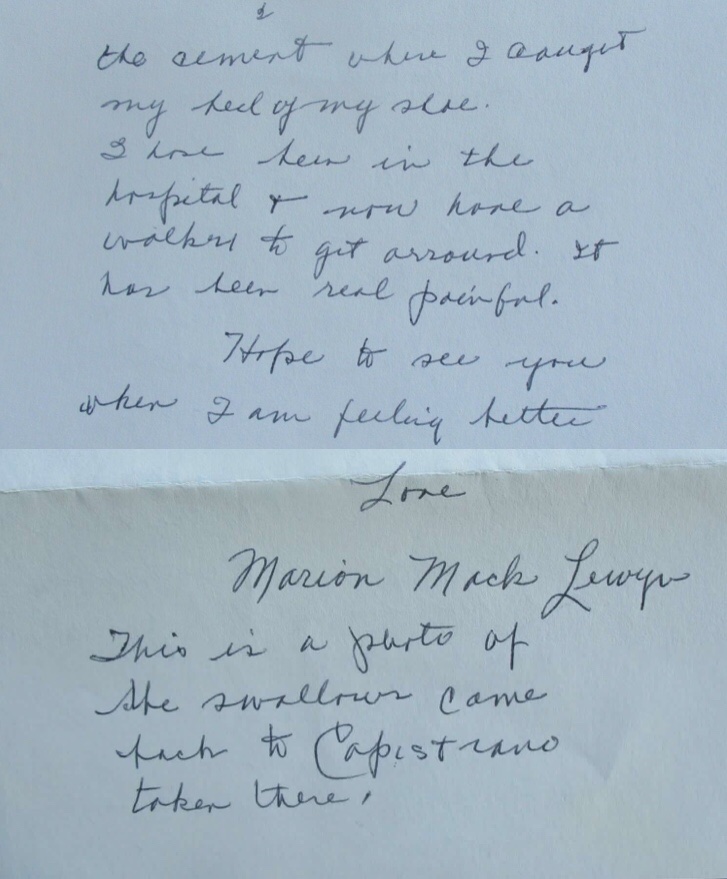 2
the cement where I caught
my heel of my shoe.
I have been in the
hospital & now have a
walker to get arround. It
has been real painful.
Hope to see you
when I am feeling better
Love
Marion Mack Lewyn
This is a photo of
the swallows came
back to Capistrano
taken there.